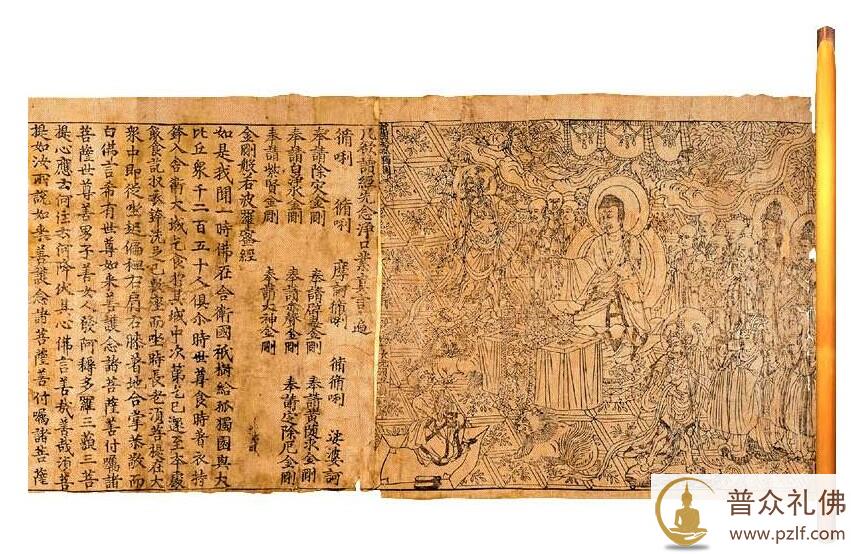 凡欲讀經先念淨口業真言一遍
脩唎 脩唎 摩訶脩唎 脩脩唎 娑婆訶
奉請除災金剛 奉請辟毒金剛 奉請黃隨求金剛
奉請白淨水金剛 奉請赤聲金剛 奉請定除厄金剛
奉請紫賢金剛 奉請大神金剛
金剛般若波羅蜜經
如是我聞一時佛在舍衛國祇樹給孤獨園與大
比丘衆千二百五十人俱尒時世尊食時著衣持
鉢入舍衛大城乞食於其城中次第乞已還至本處
飯食訖收衣鉢洗足已敷座而坐時長老須菩提在大
衆中即從座起偏袒右肩右膝著地合掌恭敬而
白佛言希有世尊如來善護念諸菩薩善付囑諸
菩薩世尊善男子善女人發阿耨多羅三藐三菩
提心應云何住云何降伏其心佛言善哉善哉須菩
提如汝所說如來善護念諸菩薩善付囑諸菩薩
普众礼佛
www.pzlf.com